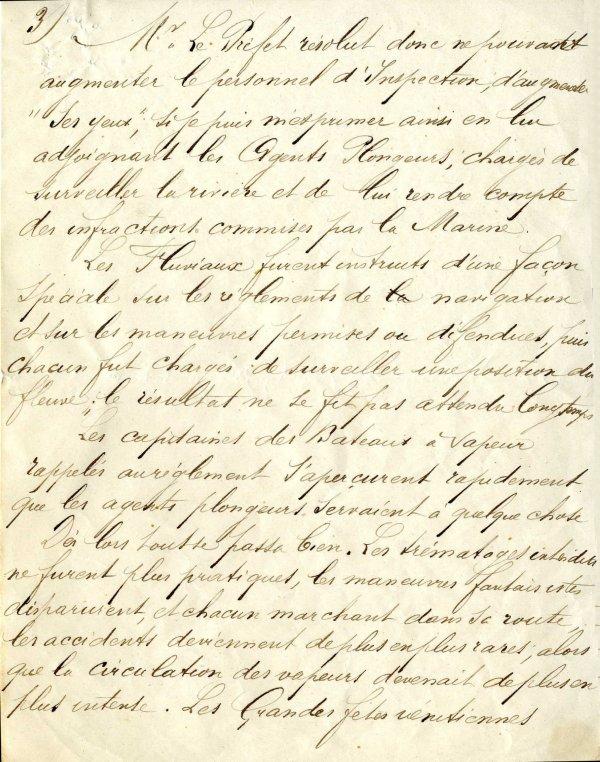 3)
Mr. Le Préfet résolut donc ne pouvant
augmenter le personnel d'Inspection, d'augmenter
"Ses yeux", si je puis m'exprimer ainsi en lui
adjoignant les Agents Plongeurs, chargés de
surveiller la rivière et de lui rendre compte
des infractions commises par la Marine.
Les Fluviaux furent instruits d'une façon
spéciale sur les réglements de la navigation
et sur les manœuvres permises ou défendues, puis
chacun fut chargés de surveiller une position du
fleuve : le résultat ne se fit pas attendre longtemps
"Les capitaines des Bateaux à vapeur
rappelés au réglement s'aperçurent rapidement
que les agents plongeurs servaient à quelque chose
Dès lors tout se passa bien. Les trématages interdits
ne furent plus pratiqués, les manœuvres fantaisistes
disparurent, et chacun marchant dans sa route,
les accidents deviennent de plus en plus rares, alors
que la circulation des vapeurs devenait de plus en
plus intense. Les Grandes fêtes vénitiennes